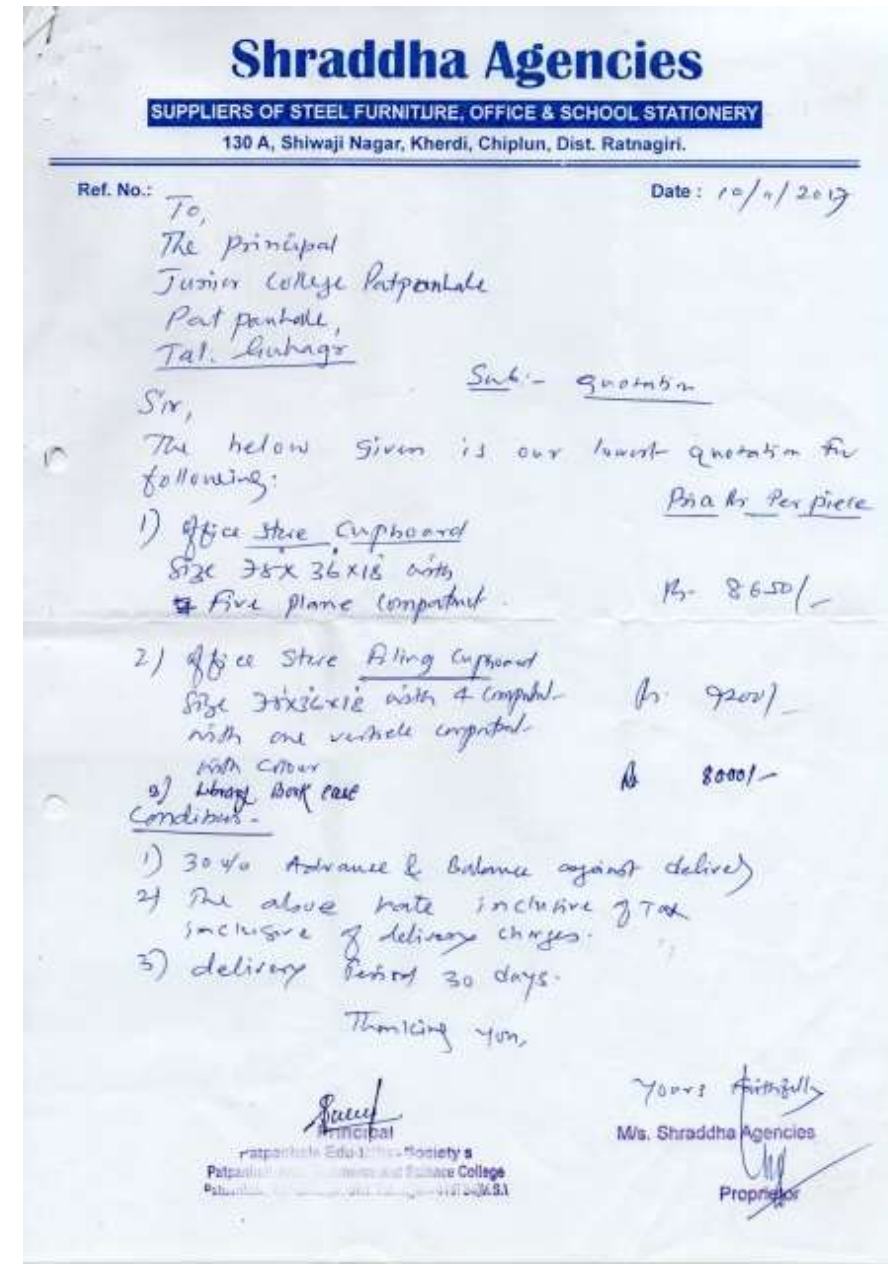 1
Shraddha Agencies
SUPPLIERS OF STEEL FURNITURE, OFFICE & SCHOOL STATIONERY
130 A, Shiwaji Nagar, Kherdi, Chiplun, Dist. Ratnagiri.
Ref. No.: Date : 10/11/2017
To,
The Principal
Junior College Patpanhale
Patpanhale,
Tal. Guhagr
Sub:- quotation
Sir,
The below given is our lowest quotation for
following:
Price Rs Per piece
1) Office Store Cupboard
Size 78x 36x18 with
Five plane compartment. Rs. 8650/-
2) Office Store Filing Cupboard
Size 78x36x18 with 4 Rs. 9200/-
with one
with colour
3) Library Book case Rs 8000/-
Conditions-
1) 30% Advance & Balance against delivery
2) The above rate inclusive of Tax
inclusive of delivery charges.
3) delivery Period 30 days.
Thanking you,
Yours Faithfully
M/s. Shraddha Agencies
Proprietor
Principal
Patpanhale Education Society's
Patpanhale Arts, Commerce and Science College